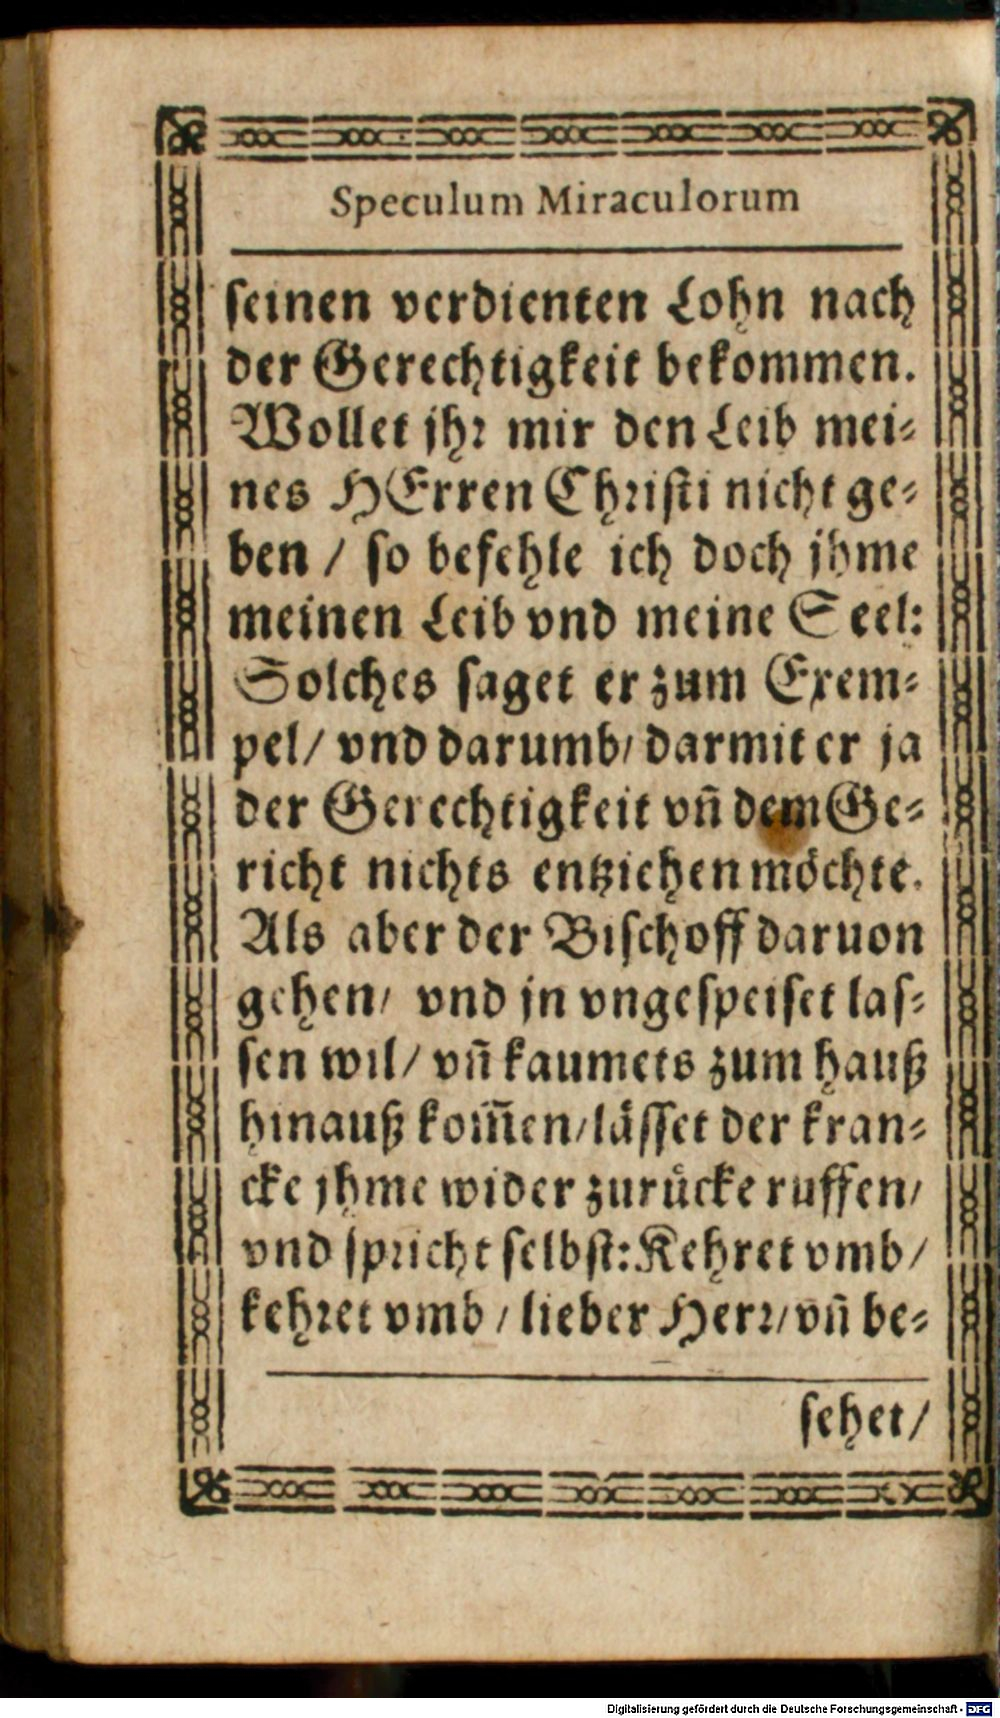 Speculum Miraculorum
seinen verdienten Lohn nach
der Gerechtigkeit bekommen.
Wollet jhr mir den Leib mei⸗
nes HErren Christi nicht ge⸗
ben / so befehle ich doch jhme
meinen Leib vnd meine Seel:
Solches saget er zum Exem⸗
pel/ vnd darumb/ darmit er ja
der Gerechtigkeit vñ dem Ge⸗
richt nichts entziehen möchte.
Als aber der Bischoff daruon
gehen/ vnd jn vngespeiset las⸗
sen wil/ vñ kaumets zum hauß
hinauß kom̃en/ lässet der kran⸗
cke jhme wider zurücke ruffen/
vnd spricht selbst: Kehret vmb/
kehret vmb / lieber Herr/ vñ be⸗
sehet/
Digitalisierung gefördert durch die Deutsche Forschungsgemeinschaft - DFG